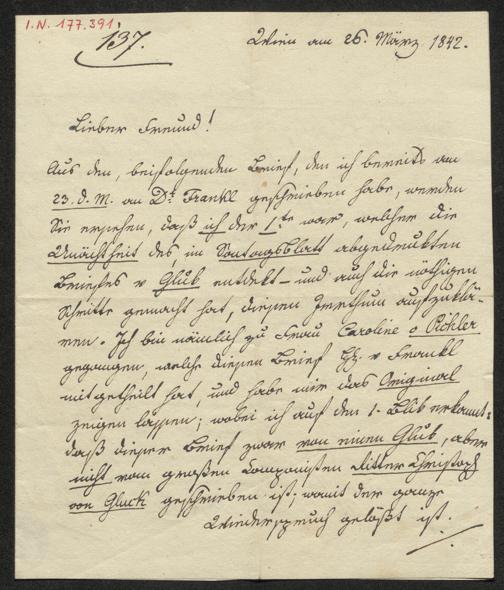 I.N. 177.391.
137.
Wien am 26. März 1842.
Lieber Freund!
Aus dem, beifolgenden Brief, den ich bereits am
23. d. M. an Dr. Frankl geschrieben habe, werden
Sie ersehen, daß ich der 1te war, welcher die
Unächtheit des, im Sontagsblatt abgedruckten
Briefes v Gluk entdekt – und auch die nöthigen
Schritte gemacht hat, diesen Irrthum aufzuklä-
ren. Ich bin nämlich zu Frau Caroline v Pichler
gegangen, welche diesen Brief H: v Frankl
mitgetheilt hat, und habe mir das Original
zeigen lassen; wobei ich auf den 1. Blik erkannt:
daß dieser Brief zwar von einem Gluk, aber
nicht vom großen Componisten Ritter Christoph
von Gluck geschrieben ist; womit der ganze
Wiederspruch gelößt ist.